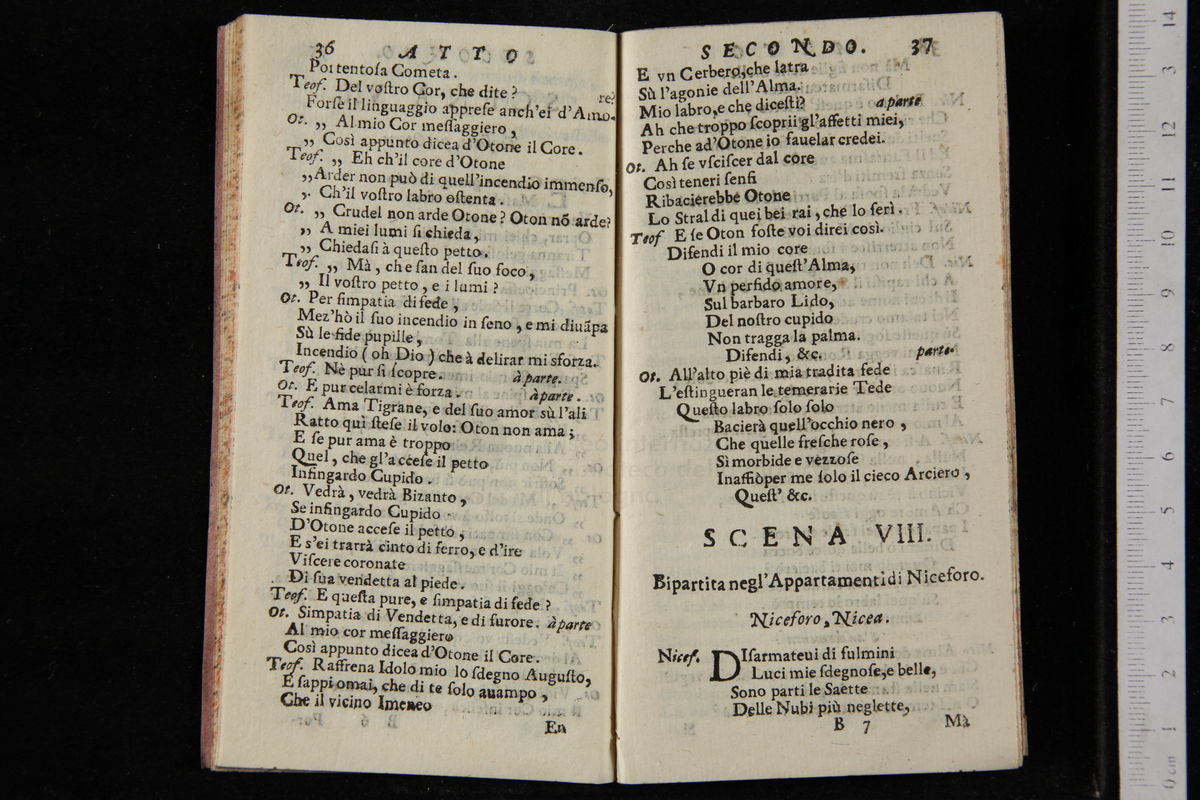 36 ATTO
Portentoſa Cometa.
Teof. Del voſtro Cor, che dite? re?
Forſe il linguaggio appreſe anch'ei d'Amo-
Ot. „ Al mio Cor meſſaggiero,
„ Così appunto dicea d'Otone il Core.
Teof. „ Eh ch'il core d'Otone
„Arder non può di quell'incendio immenſo,
„ Ch'il voſtro labro oſtenta.
Ot. „ Crudel non arde Otone? Oton nõ arde?
„ A miei lumi ſi chieda,
„ Chiedaſi à queſto petto.
Teof. „ Mà, che ſan del ſuo foco,
„ Il voſtro petto, e i lumi?
Ot. Per ſimpatia di fede,
Mez'hò il ſuo incendio in ſeno, e mi diuãpa
Sù le fide pupille,
Incendio (oh Dio) che à delirar mi sforza.
Teof. Nè pur ſi ſcopre. à parte.
Ot. E pur celarmi è forza. à parte.
Teof. Ama Tigrane, e del ſuo amor sù l'ali
Ratto quì ſteſe il volo: Oton non ama;
E ſe pur ama è troppo
Quel, che gl'acceſe il petto
Infingardo Cupido.
Ot. Vedrà, vedrà Bizanto,
Se infingardo Cupido
D'Otone acceſe il petto,
E s'ei trarrà cinto di ferro, e d'ire
Viſcere coronate
Di ſua vendetta al piede.
Teof. E queſta pure, e ſimpatia di fede?
Ot. Simpatia di Vendetta, e di furore. à parte
Al mio cor meſſaggiero
Così appunto dicea d'Otone il Core.
Teof. Raffrena Idolo mio lo ſdegno Auguſto,
E ſappi omai, che di te ſolo auampo,
Che il vicino Imeneo
En
SECONDO. 37
E vn Cerbero, che latra
Sù l'agonie dell'Alma.
Mio labro, e che diceſti? a parte
Ah che troppo ſcoprii gl'affetti miei,
Perche ad'Otone io fauelar credei.
Ot. Ah ſe vſciſcer dal core
Così teneri ſenſi
Ribacierebbe Otone
Lo Stral di quei bei rai, che lo ferì.
Teof E ſe Oton foſte voi direi così.
Difendi il mio core
O cor di queſt'Alma,
Vn perfido amore,
Sul barbaro Lido,
Del noſtro cupido
Non tragga la palma.
Difendi, &c. parte.
Ot. All'alto piè di mia tradita fede
L'eſtingueran le temerarie Tede
Queſto labro ſolo ſolo
Bacierà quell'occhio nero,
Che quelle freſche roſe,
Sì morbide e vezzoſe
Inaffiò per me ſolo il cieco Arciero,
Queſt' &c.
SCENA VIII.
Bipartita negl'Appartamenti di Niceforo.
Niceforo, Nicea.
Nicef. DIſarmateui di fulmini
Luci mie ſdegnoſe, e belle,
Sono parti le Saette
Delle Nubi più neglette,
B 7 Mà